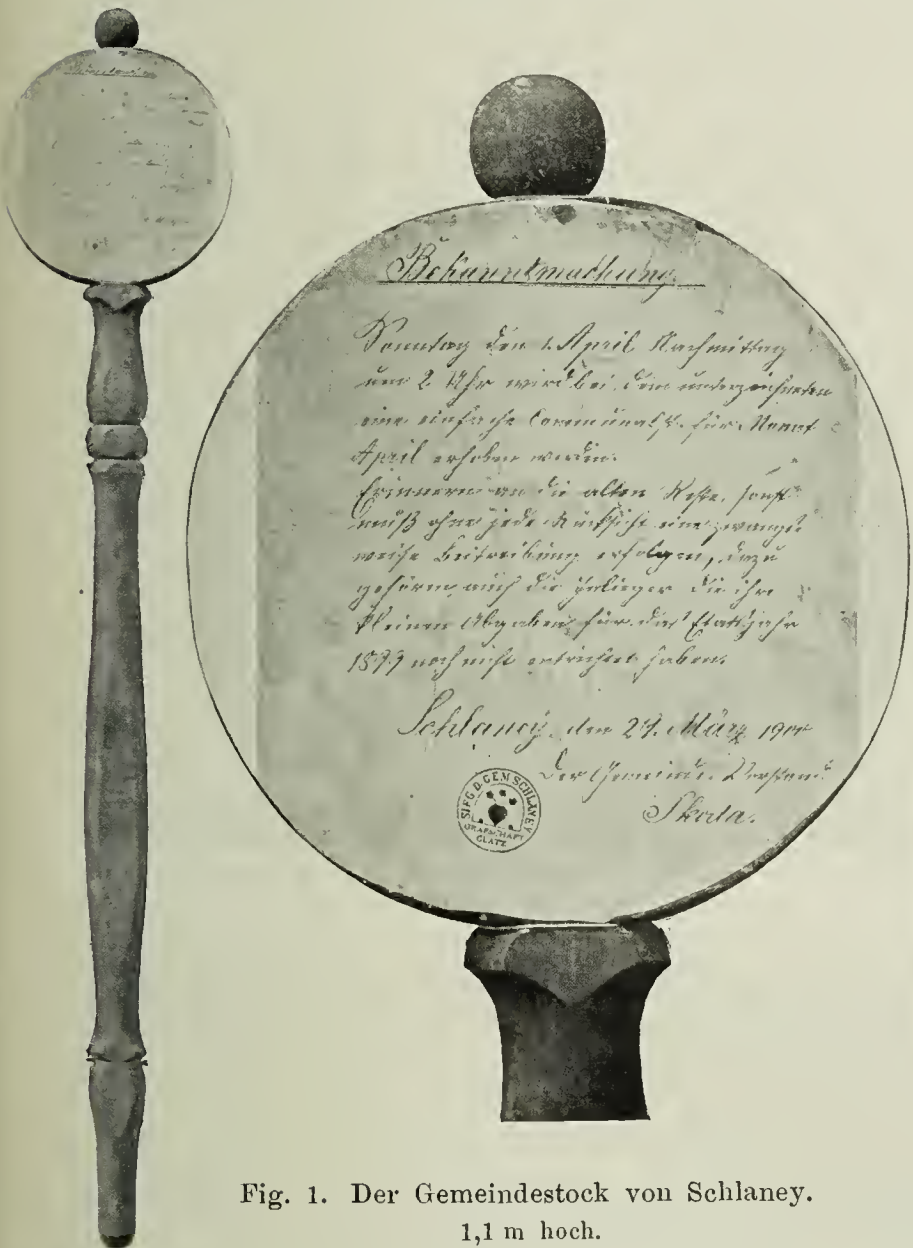 Bekanntmachung.
Sonntag den 1. April Nachmittag
um 2 Uhr wird bei dem unterzeichneten
eine einfache Communalst. für Monat
April erhoben werden.
Erinnern an die alten Reste, sonst
muß ohne jede Rücksicht eine zwangs
weise Beitreibung erfolgen, dazu
gehören auch die Inlieger die ihre
kleinen Abgaben für das Etatsjahr
1899 noch nicht entrichtet haben.
Schlaney, den März 1900
Der Gemeinde Vorstand
Skoda.
SIEG. D. GEM SCHLANEY
GRAFSCHAFT
GLATZ
Fig. 1. Der Gemeindestock von Schlaney.
1,1 m hoch.